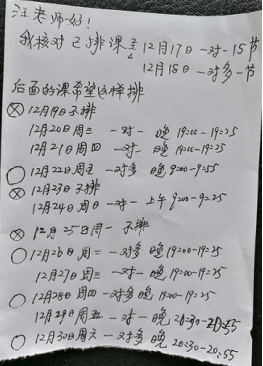 汪老师好!
我核对已排课至12月17日一对一15节
12月18日一对多一节
后面的课希望这样排
12月19日不排
12月20日周三 一对一 晚19:00-19:25
12月21日周四 一对一 晚19:00-19:25
12月22日周五 一对多 晚9:00-9:55
12月23日不排
12月24日周日 一对一 上午9:00-9:25
12月25日周一 不排
12月26日周二 一对多 晚19:00-19:25
12月27日周三 一对一 晚19:00-19:25
12月28日周四 一对多 晚19:00-19:25
12月29日周五 一对一 晚20:30-20:55
12月30日周六 一对多 晚20:30-20:55